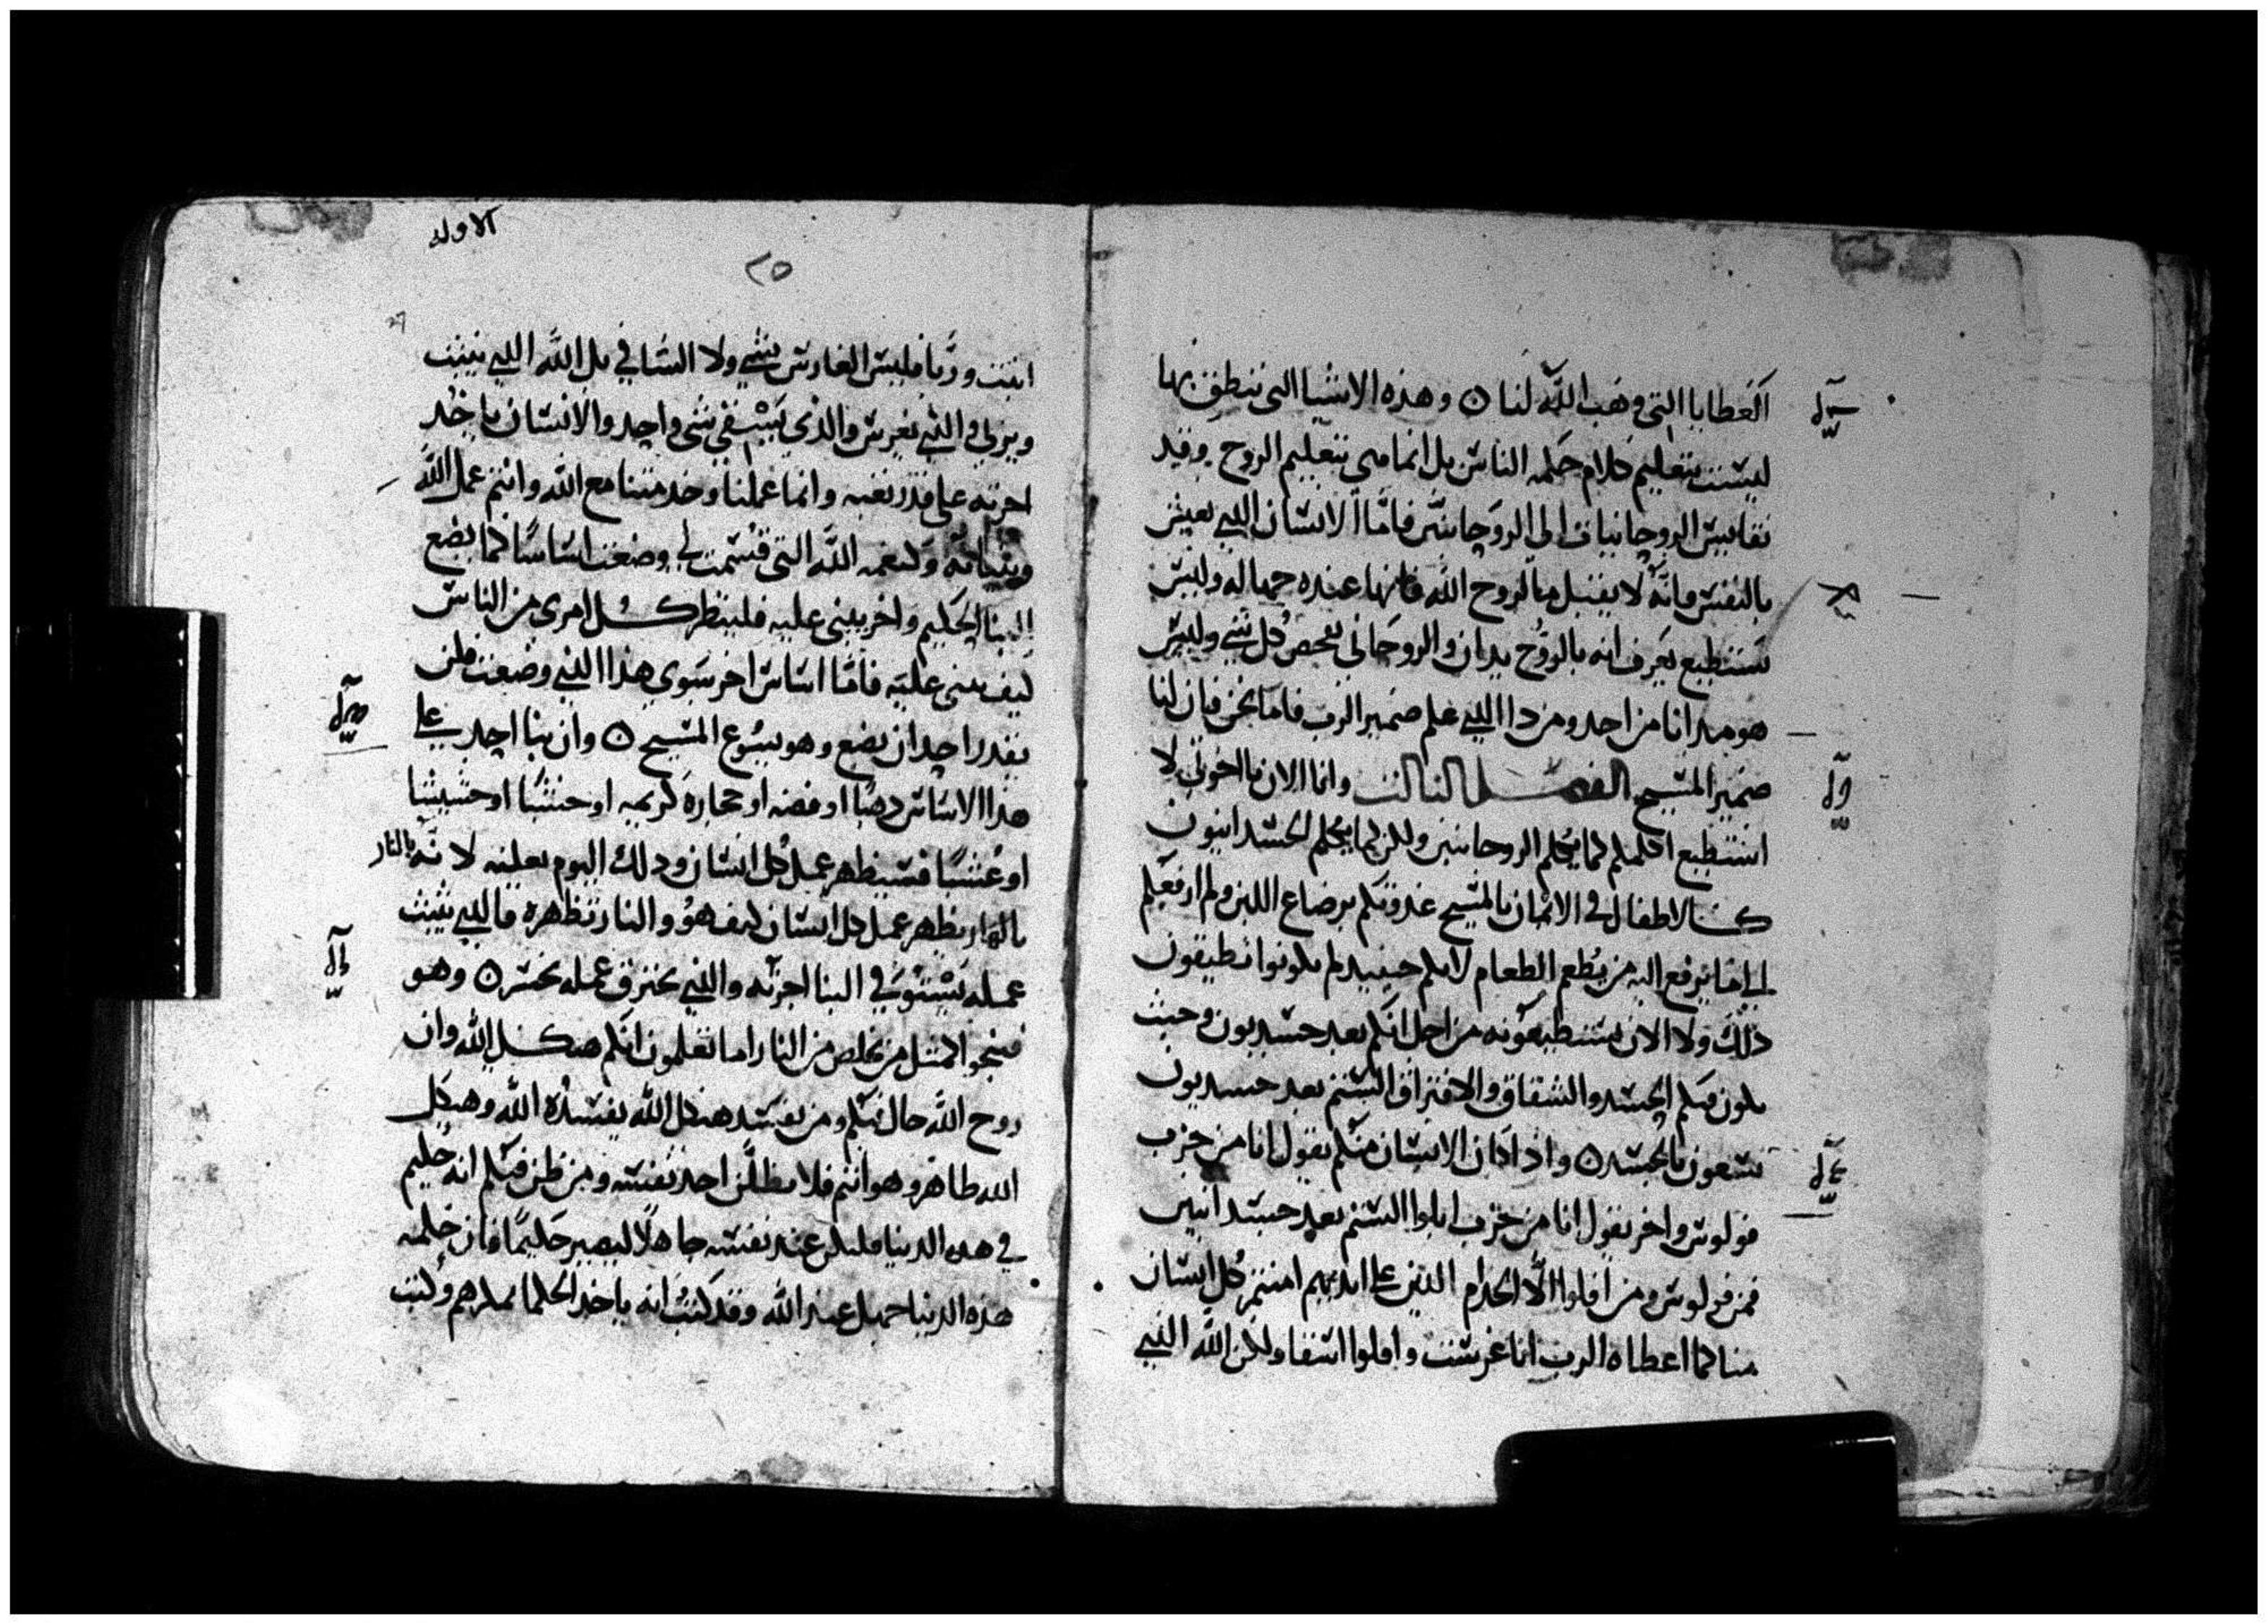 العطايا التي وهب الله لنا ٥ وهذه الاشيا التي ننطق بها
ليست بتعليم كلام حكمه الناس بل انما هي بتعليم الروح وقد
نقايس الروحانيات الى الروحانيين فاما الانسان الذي يعيش
بالنفس فانه لا يقبل ما لروح الله فانها عنده جهاله وليس
يستطيع يعرف انه بالروح يدان والروحاني يفحص كل شي وليس
هو يدانا من احد ومن ذا الذي علم ضمير الرب فاما نحن فان لنا
ضمير المسيح الفصل الثالث وانا الان يا اخوتي لا
استطيع اكلمكم كما يكلم الروحانيين ولكن كما يكلم الجسدانيون
كالاطفال في الايمان بالمسيح غذوتكم برضاع اللبن ولم ارفعكم
الى ما يرفع اليه من يطعم الطعام لانكم حينيد لم تكونوا تطيقون
ذلك ولا الان تستطيعونه من اجل انكم بعد جسديون وحيث
يكون فيكم الحسد والشقاق والافتراق الستم بعد جسديون
تسعون بالجسد ٥ واذا كان الانسان منكم يقول انا من حزب
فولوس واخر يقول انا من حزب ابلوا الستم بعد جسدانيين
فمن فولوس ومن افلوا الا الخدام الذين على ايديهم امنتم كل انسان
منا كما اعطاه الرب انا غرست وافلوا اسقا ولكن الله الذي
الاوله
٢٥
27
انبت وربا فليس الغارس بشي ولا الساقي بل الله الذي ينبت
ويربي والذي يغرس والذي يسقي شي واحد والانسان ياخذ
اجرته على قدر تعبه وانما عملنا وخدمتنا مع الله وانتم عمل الله
وبنيانه وكنعمه الله التي قسمت لي وضعت اساسا كما يضع
البنا الحكيم واخر يبني عليه فلينظر كل امرى من الناس
كيف يبني عليه فاما اساس اخر سوي هذا الذي وضعت فلن
يقدر احد ان يضع وهو يسوع المسيح ٥ وان بنا احد على
هذا الاساس ذهبا او فضه او حجاره كريمه او خشبا او حشيشا
او عشبا فسيظهر عمل كل انسان وذلك اليوم يعلنه لانه بالنار
بالنار يظهر عمل كل انسان كيف هو والنار تظهره فالذي يثبت
عمله يستوفي البنا اجرته والذي يحترق عمله يخسر ٥ وهو
فينجوا كمثل من يخلص من النار اما تعلمون انكم هيكل الله وان
روح الله حال فيكم ومن يفسد هيكل الله يفسده الله وهيكل
الله طاهر وهو انتم فلا يظلن احد نفسه ومن ظن فيكم انه حكيم
في هذه الدنيا فليكن عند نفسه جاهلا ليصير حكيما فان حكمه
هذه الدنيا جهل عند الله وقد كتب انه ياخذ الحكما بمكرهم وكتب